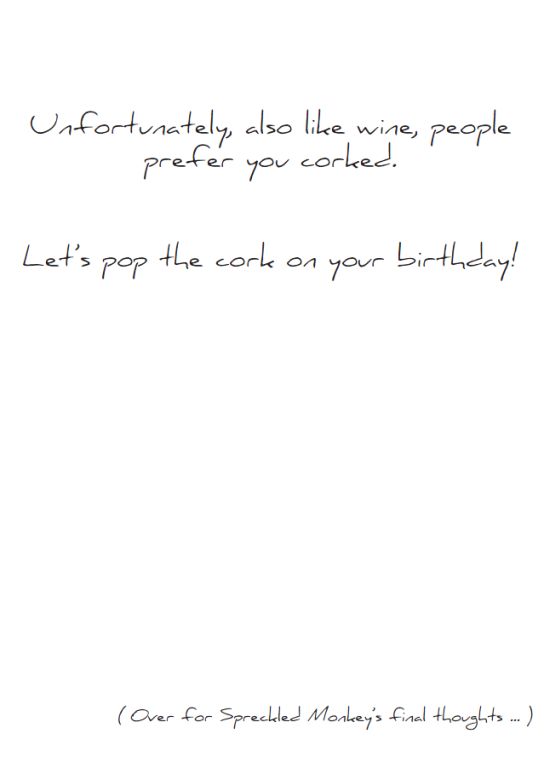 Unfortunately, also like wine, people
prefer you corked.
Let's pop the cork on your birthday!
( Over for Spreckled Monkey's final thoughts ... )